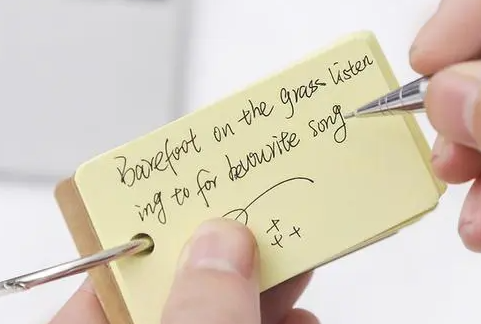 Barefoot on the grass listen
ing to for bevourite song